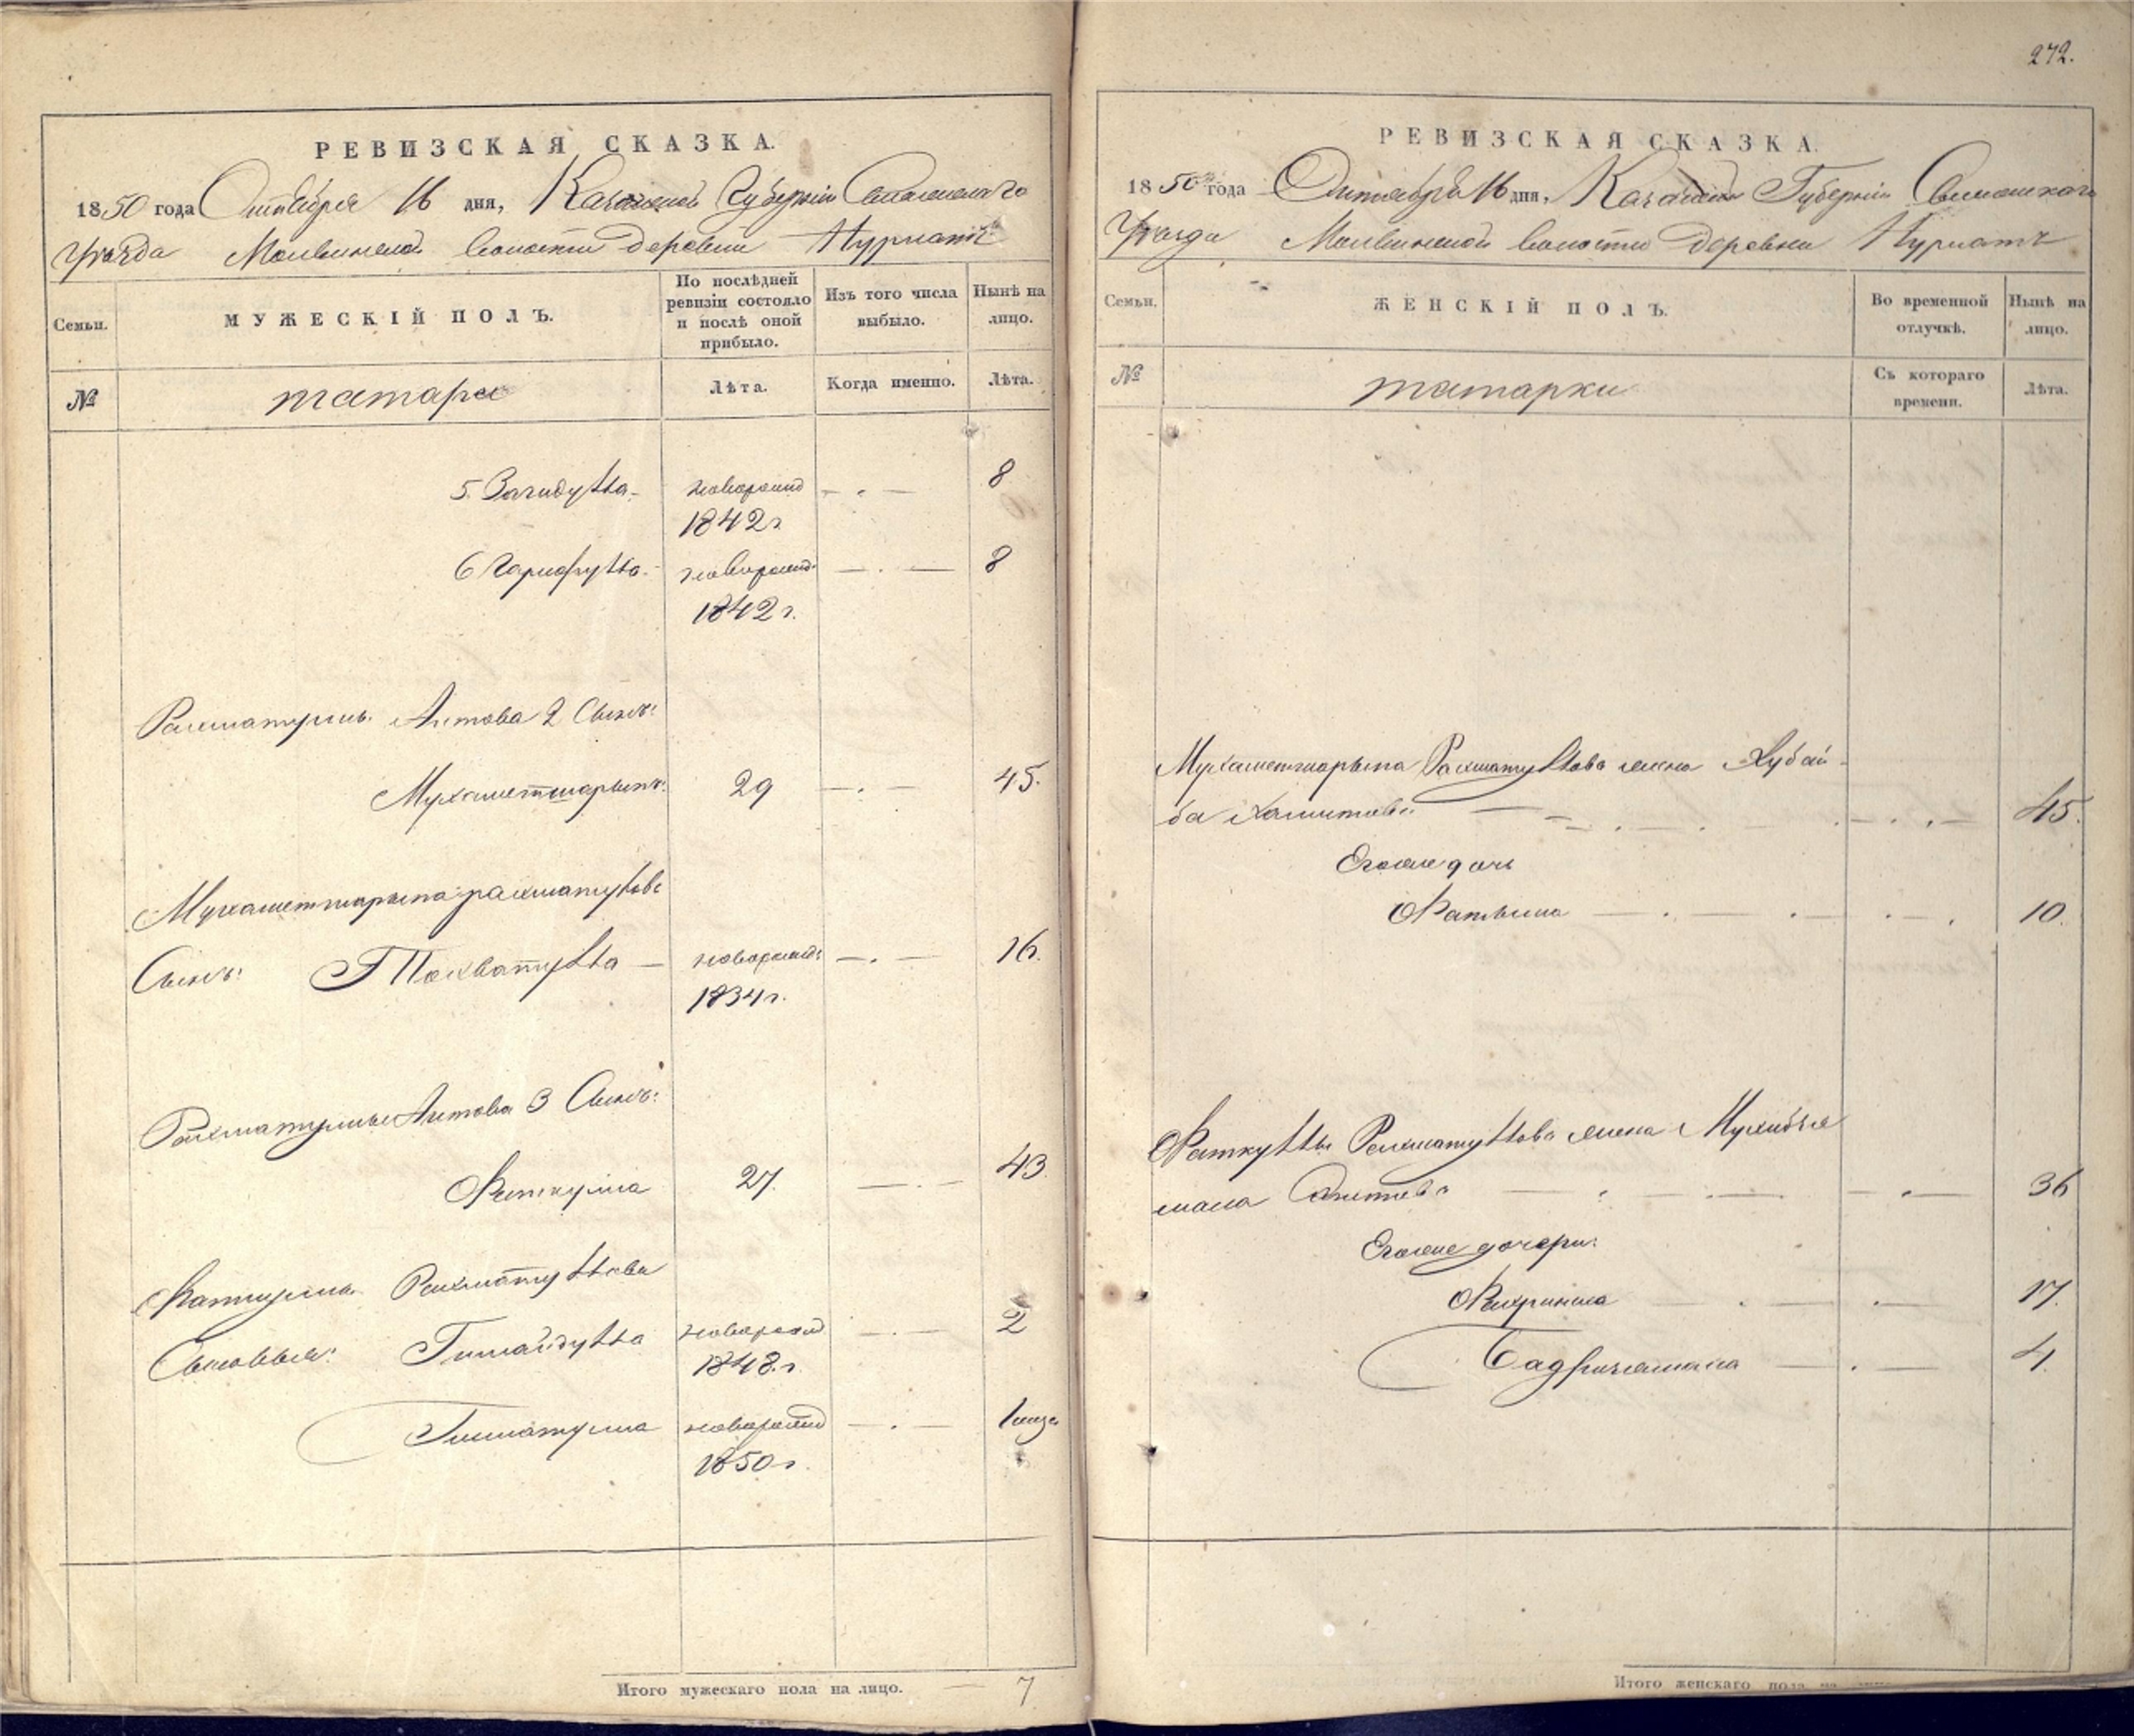 272.
РЕВИЗСКАЯ СКАЗКА.
1850 года Октября 16 дня, Казанской Губернiи Спасскаго
Уѣзда Молвинской Волости деревни Нурлатъ
Семьи.
МУЖЕСКІЙ ПОЛЪ.
По послѣдней ревизіи состояло и послѣ оной прибыло.
Изъ того числа выбыло.
Нынѣ на лицо.
№
татары
Лѣта.
Когда именно.
Лѣта.
5. Загидулла новорожд 8
1842 г
6 Гарифулла новорожд. 8
1842 г.
Рахматуллы Аитова 2 Сынъ:
Мухаметшарыпъ 29 45.
Мухаметшарыпа рахматуллов
Сынъ: новорожд: 16.
1834 г.
Рахматуллы Аитова 3 Сынъ:
Фаткулла 27. 43.
Фаткуллы Рахматуллова
Сыновья: новорожд 2
1848. г.
новорожд
1850 г.
Итого мужескаго пола на лицо. 7
РЕВИЗСКАЯ СКАЗКА.
1850 года Октября 16 дня, Казанской Губернiи Спасскаго
Уѣзда Молвинской Волости Деревни Нурлатъ
Семьи.
ЖЕНСКІЙ ПОЛЪ.
Во временной отлучкѣ.
Нынѣ на лицо.
№
татарки
Съ котораго времени.
Лѣта.
Мухаметшарыпа Рахматуллова жена Хубай-
ба Хамитова 45.
Егоже дочь
Фатьима 10.
Фаткуллы Рахматуллова жена
36
Егоже дочери:
17.
Бадрижамала 4.
Итого женскаго пола на